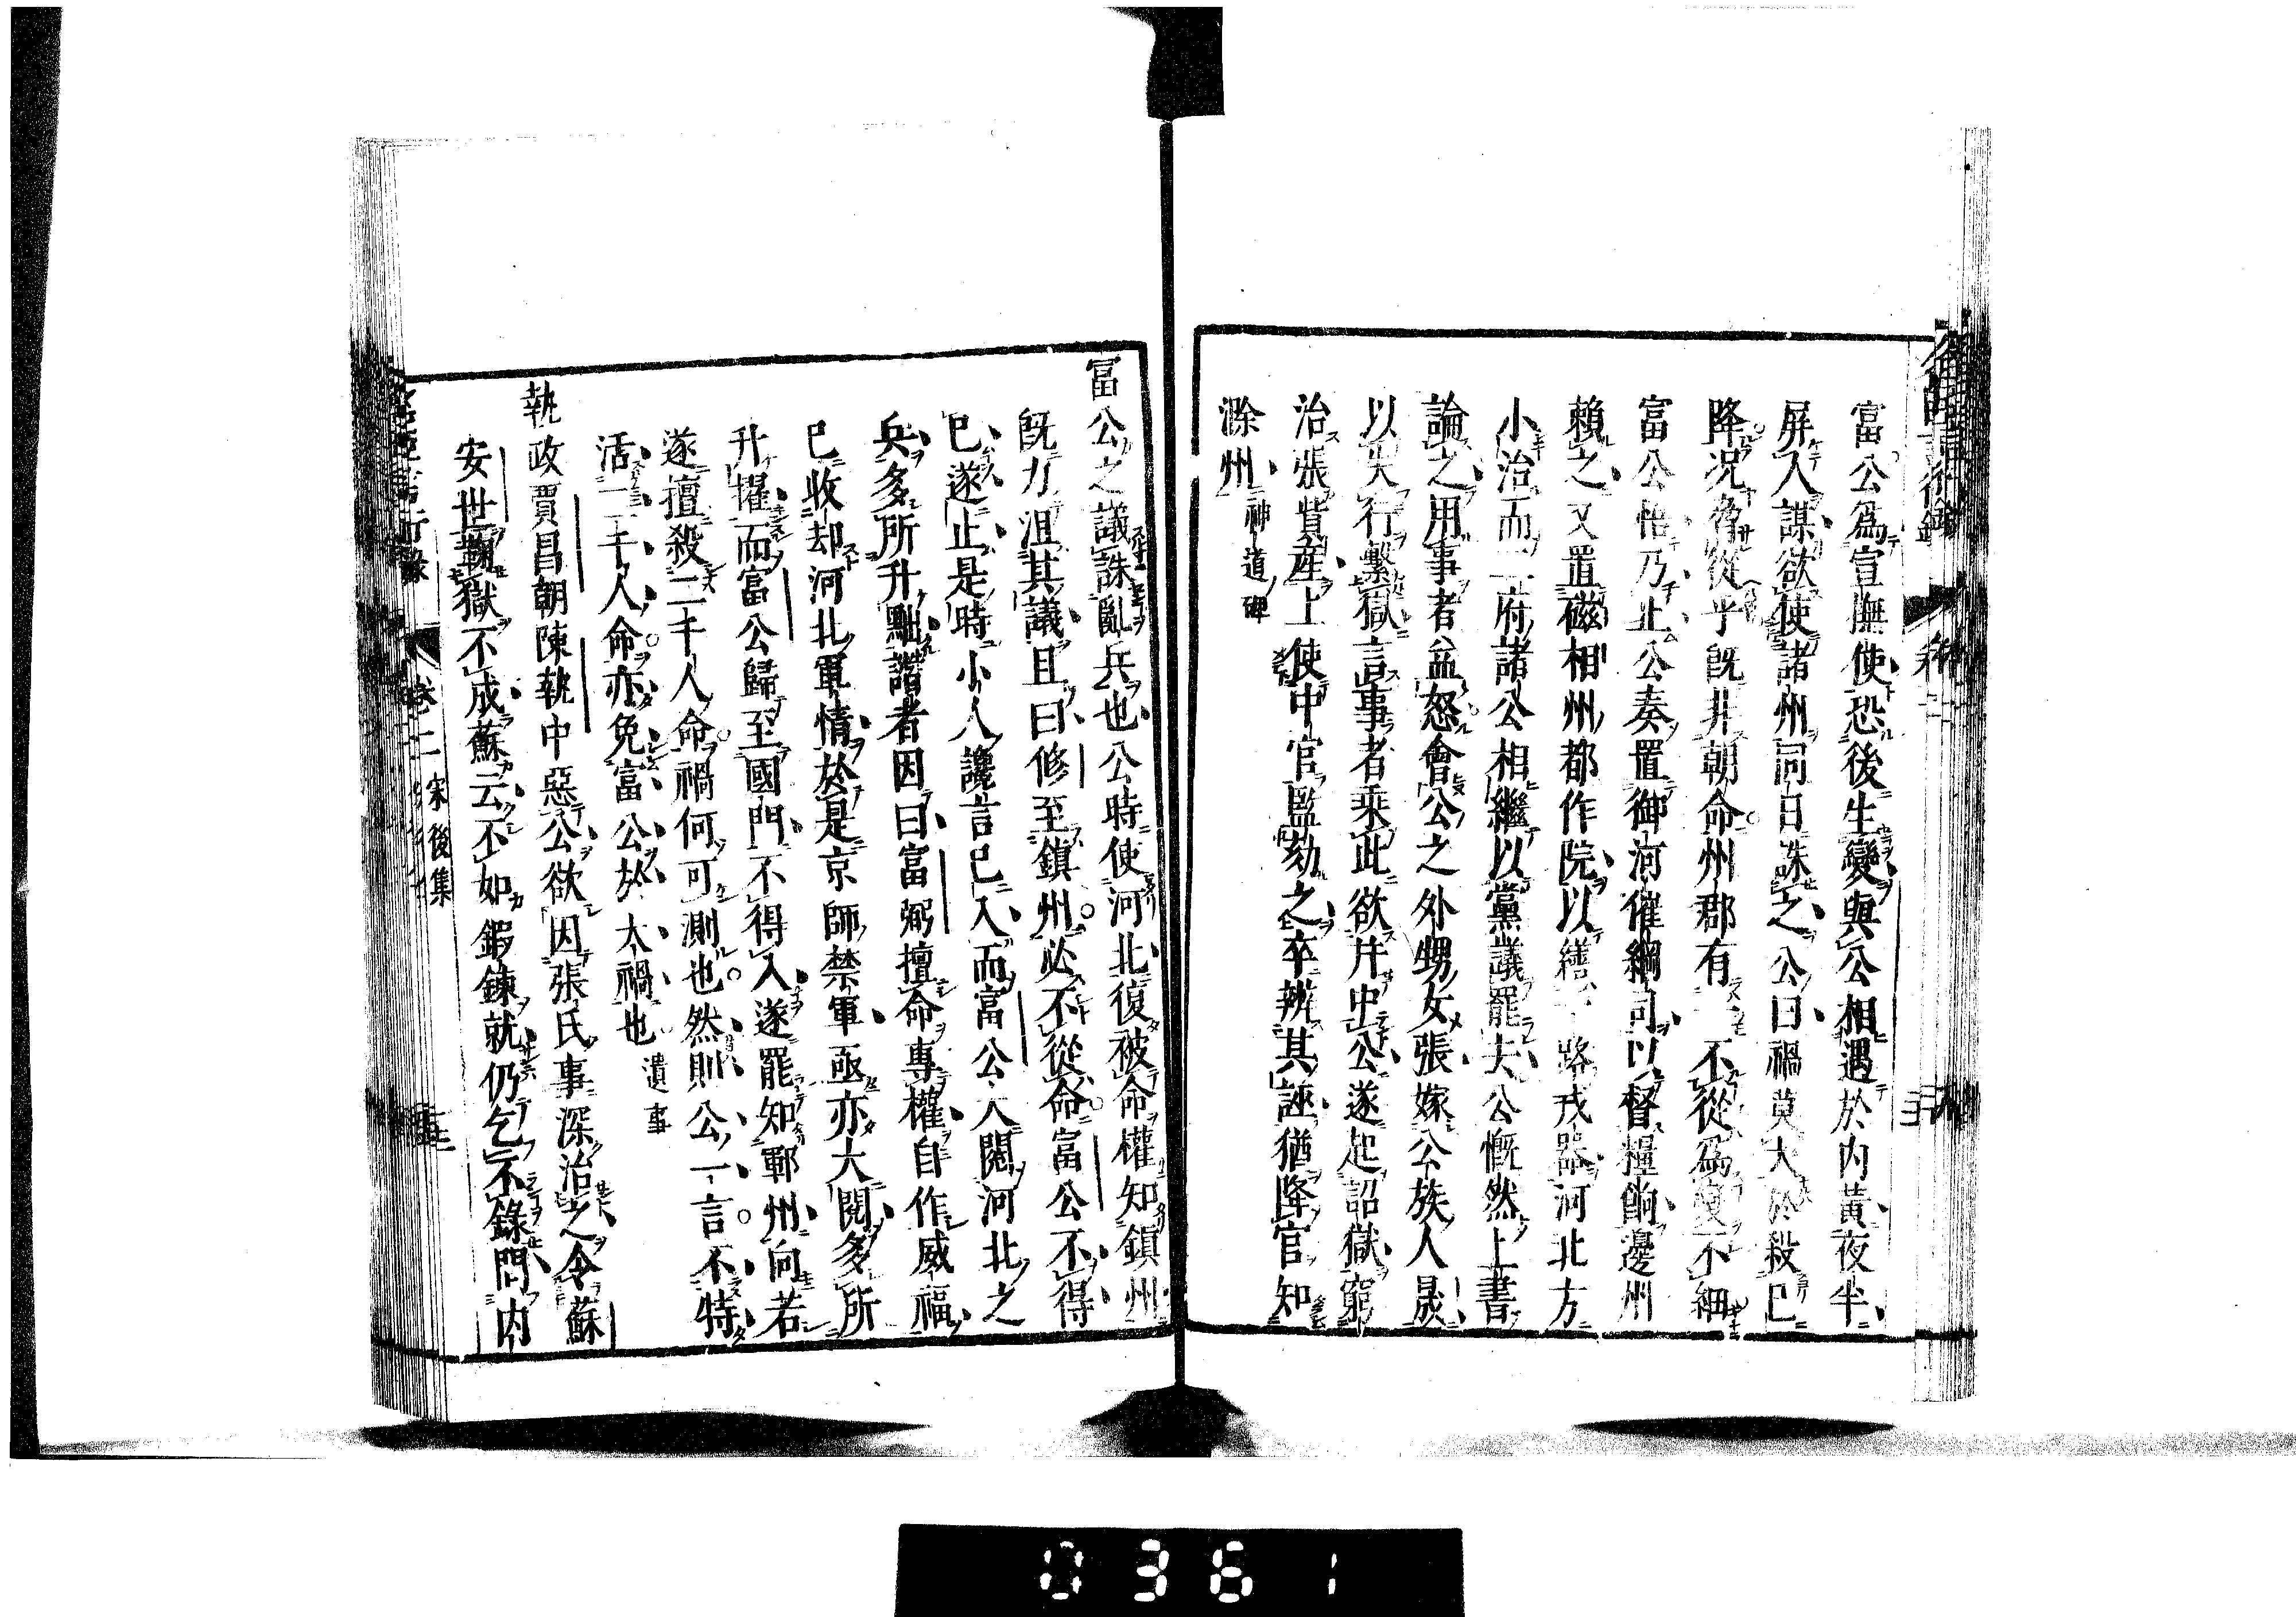 富公爲宣撫使恐後生變與公相遇於内黃夜半
屏人謀欲使諸州同日誅之公曰禍莫大於殺已
降况脅從乎旣非朝命州郡有一不從爲變不細
富公悟乃止公奏置御河催綱司以督糧餉邊州
賴之又置磁相州都作院以繕一路戎器河北方
小治而二府諸公相繼以黨議罷去公慨然上書
論之用事者益怒會公之外甥女張嫁公族人晟
以失行繫獄言事者乘此欲幷中公遂起詔獄窮
治張貲產上使中官監劾之卒辨其誣猶降官知
滁州 神道碑
富公之議誅亂兵也公時使河北復被命權知鎮州
旣力沮其議且曰修至鎮州必不從命富公不得
已遂止是時小人讒言已入而富公大閱河北之
兵多所升黜譖者因曰富弼擅命專權自作威福
已收却河北軍情於是京師禁軍亟亦大閱多所
升擢而富公歸至國門不得入遂罷知鄆州向若
遂擅殺二千人命禍何可測也然則公一言不特
活二千人命亦免富公於大禍也 遺事
執政賈昌朝陳執中惡公欲因張氏事深治之令蘇
安世鞫獄不成蘇云不如鍜鍊就仍乞不錄問内
卷二 宋後集